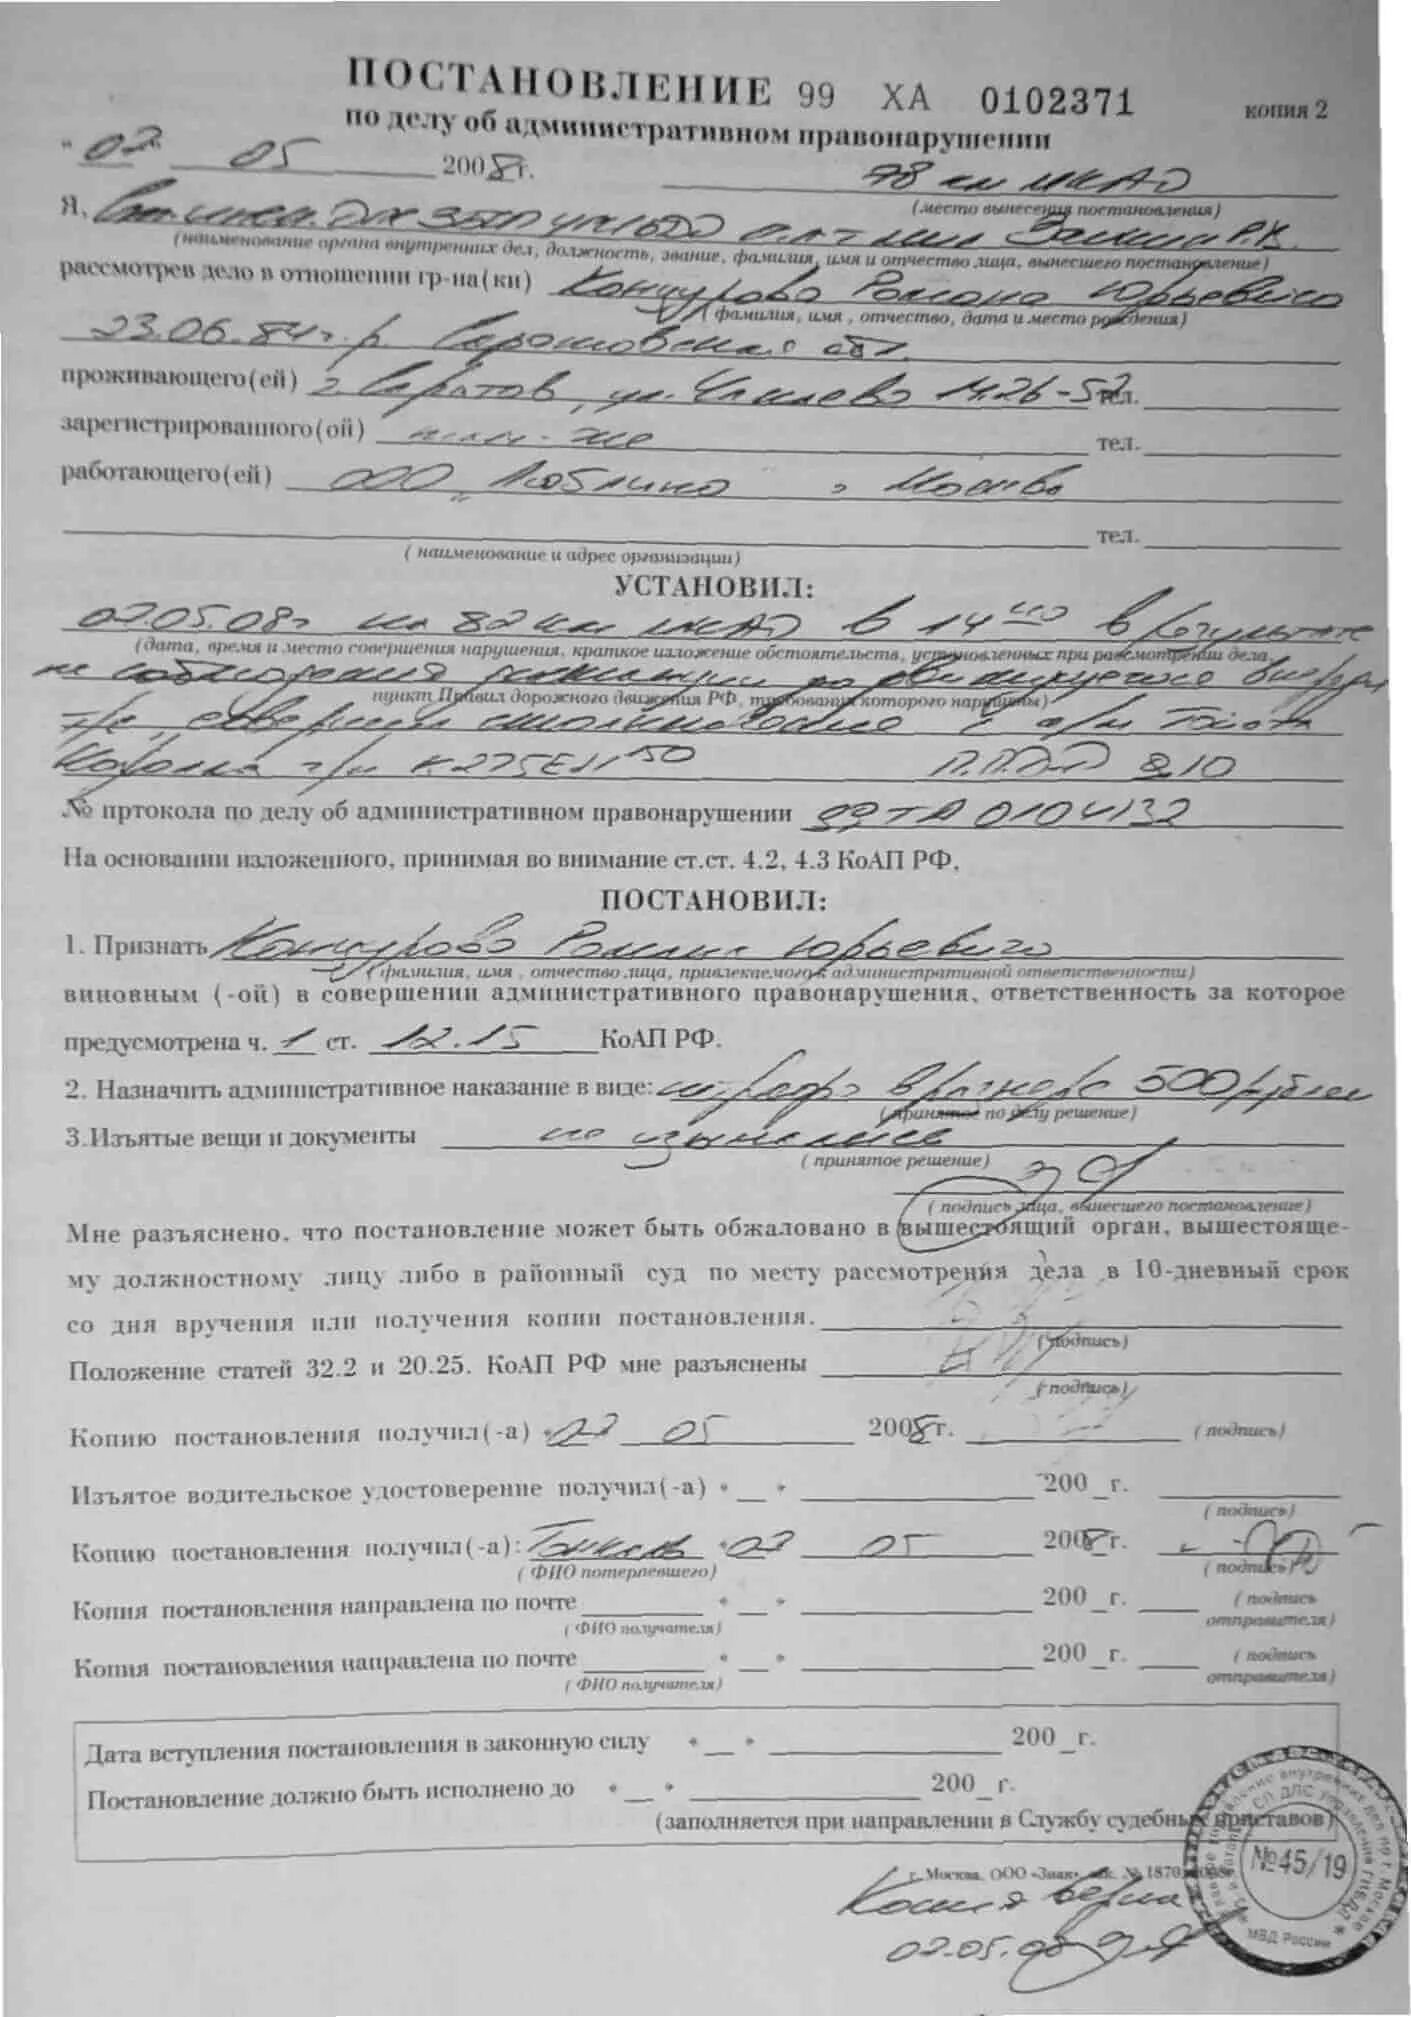 ПОСТАНОВЛЕНИЕ 99 ХА 0102371
копия 2
по делу об административном правонарушении
" 02 " 05 2008 г.
78 км МКАД
(место вынесения постановления)
Я,
(наименование органа внутренних дел, должность, звание, фамилия, имя и отчество лица, вынесшего постановление)
рассмотрев дело в отношении гр-на(ки) Романа Юрьевича
(фамилия, имя , отчество, дата и место рождения)
23.06.84 г.р. Саратовская обл.
проживающего(ей) г. Саратов, ул. 26-52 тел.
зарегистрированного(ой) там-же тел.
работающего(ей) ООО "Люблино г Москва
тел.
( наименование и адрес организации)
УСТАНОВИЛ:
02.05.08г на 82 км МКАД в 14 в результате
(дата, время и место совершения нарушения, краткое изложение обстоятельств, установленных при рассмотрении дела,
не соблюдения дистанции до движущегося впереди
пункт Правил дорожного движения РФ, требования которого нарушены)
т/с, совершил столкновение с а/м Тойота
Королла г/н П.ПДД 9.10
№ пртокола по делу об административном правонарушении 99 ТА 0104132
На основании изложенного, принимая во внимание ст.ст. 4.2, 4.3 КоАП РФ,
ПОСТАНОВИЛ:
1. Признать Романа Юрьевича
(фамилия, имя , отчество лица, привлекаемого к административной ответственности)
виновным (-ой) в совершении административного правонарушения, ответственность за которое
предусмотрена ч. 1 ст. 12.15 КоАП РФ.
2. Назначить административное наказание в виде: штрафа в размере 500 рублей
(принятое по делу решение)
3.Изъятые вещи и документы не изымались
( принятое решение)
( подпись лица, вынесшего постановление)
Мне разъяснено, что постановление может быть обжаловано в вышестоящий орган, вышестояще-
му должностному лицу либо в районный суд по месту рассмотрения дела в 10-дневный срок
со дня вручения или получения копии постановления.
(подпись)
Положение статей 32.2 и 20.25. КоАП РФ мне разъяснены
( подпись)
Копию постановления получил(-а) " 02 " 05 2008г. ( подпись)
Изъятое водительское удостоверение получил(-а) " " 200 г.
( подпись)
Копию постановления получил(-а): " 02 " 05 2008г.
( ФИО потерпевшего) ( подпись)
Копия постановления направлена по почте " " 200 г. ( подпись
( ФИО получателя) отправителя)
Копия постановления направлена по почте " " 200 г. ( подпись
( ФИО получателя) отправителя)
Дата вступления постановления в законную силу " " 200 г.
Постановление должно быть исполнено до " " 200 г.
(заполняется при направлении в Службу судебных приставов)
г. Москва, ООО «Знак»,
Копия верна
02.05.08
№45/19
МВД России